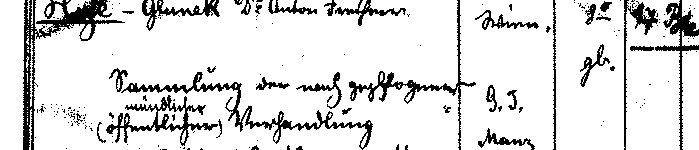 Hye - Glunek Dr Anton Freiherr Wien. 8° 17 Bde
gb.
Sammlung der nach gepflogener G. J.
mündlicher
(öffentlicher) Verhandlung Manz